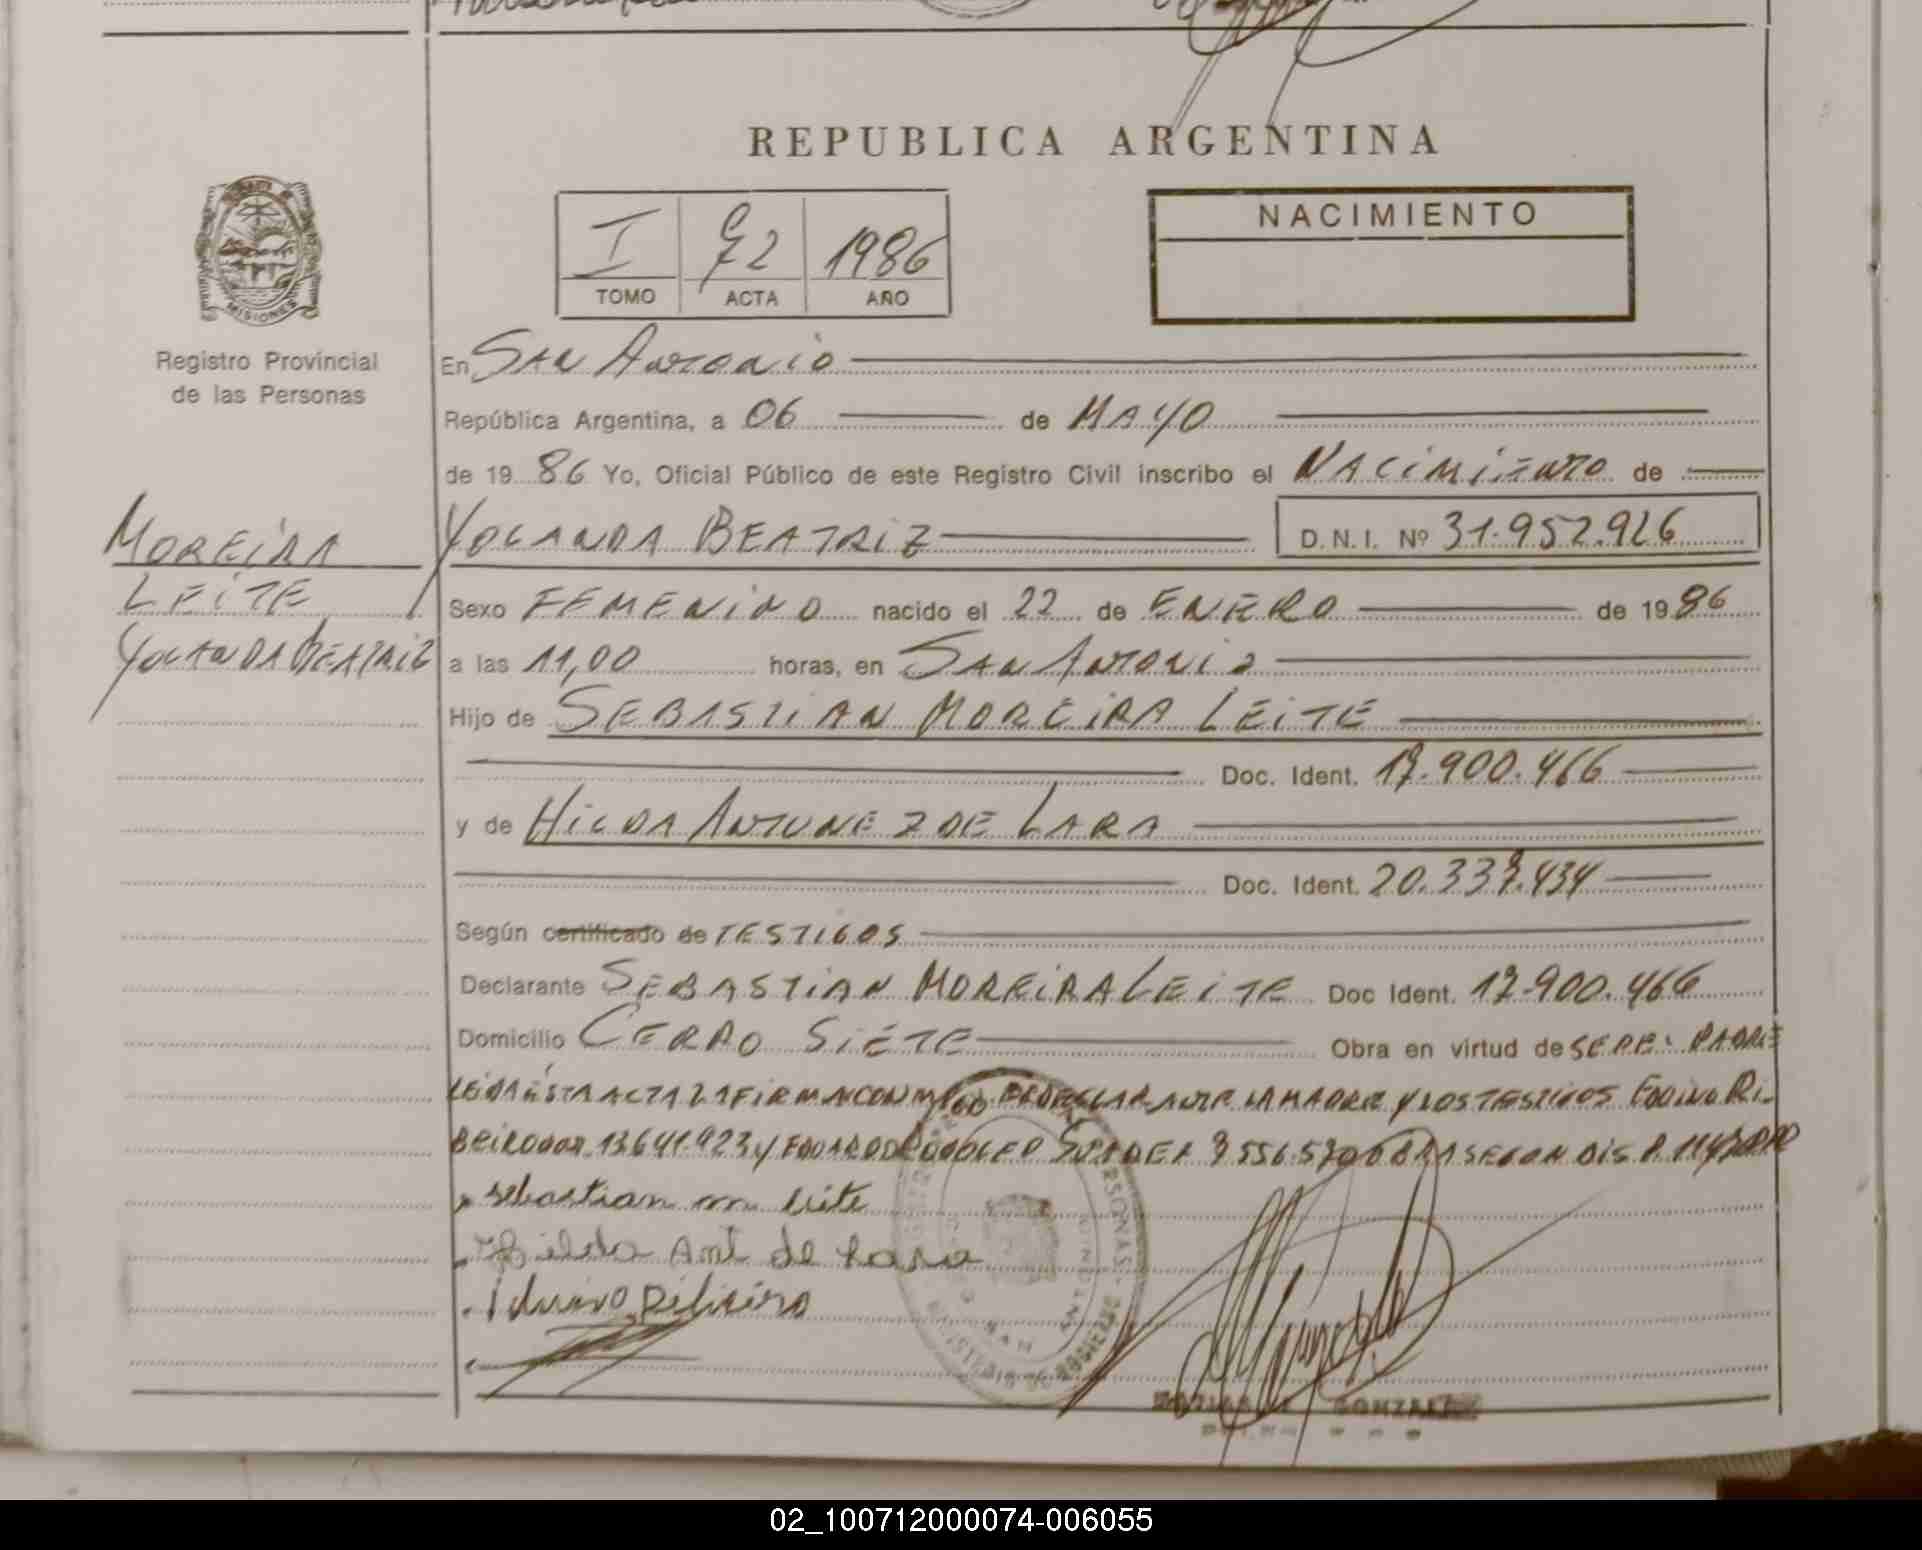 REPUBLICA ARGENTINA
NACIMIENTO
I 72 1986
TOMO ACTA AÑO
MISIONES
Registro Provincial
de las Personas
En San Antonio
República Argentina, a 06 de MAYO
de 1986 Yo, Oficial Público de este Registro Civil inscribo el NACIMIENTO de
MOREIRA
LEITE
YOLANDA BEATRIZ
YOLANDA BEATRIZ D.N.I. Nº 31.952.926
Sexo FEMENINO nacido el 22 de ENERO de 1986
a las 11,00 horas, en SAN ANTONIO
Hijo de SEBASTIAN MOREIRA LEITE
Doc. Ident. 17.900.466
y de HILDA ANTUNEZ DE LARA
Doc. Ident. 20.337.434
Según certificado de TESTIGOS
Declarante SEBASTIAN MOREIRA LEITE Doc Ident. 17.900.466
Domicilio CERRO SIETE Obra en virtud de SER EL PADRE
LEIDA ESTA ACTA LA FIRMAN CONMIGO EL DECLARANTE LA MADRE Y LOS TESTIGOS EDOINO RI-
BEIRO 13.641.923 Y EDUARDO RODOLFO
sebastian m leite
Hielda Ant de Lara
GONZALEZ
02_100712000074-006055